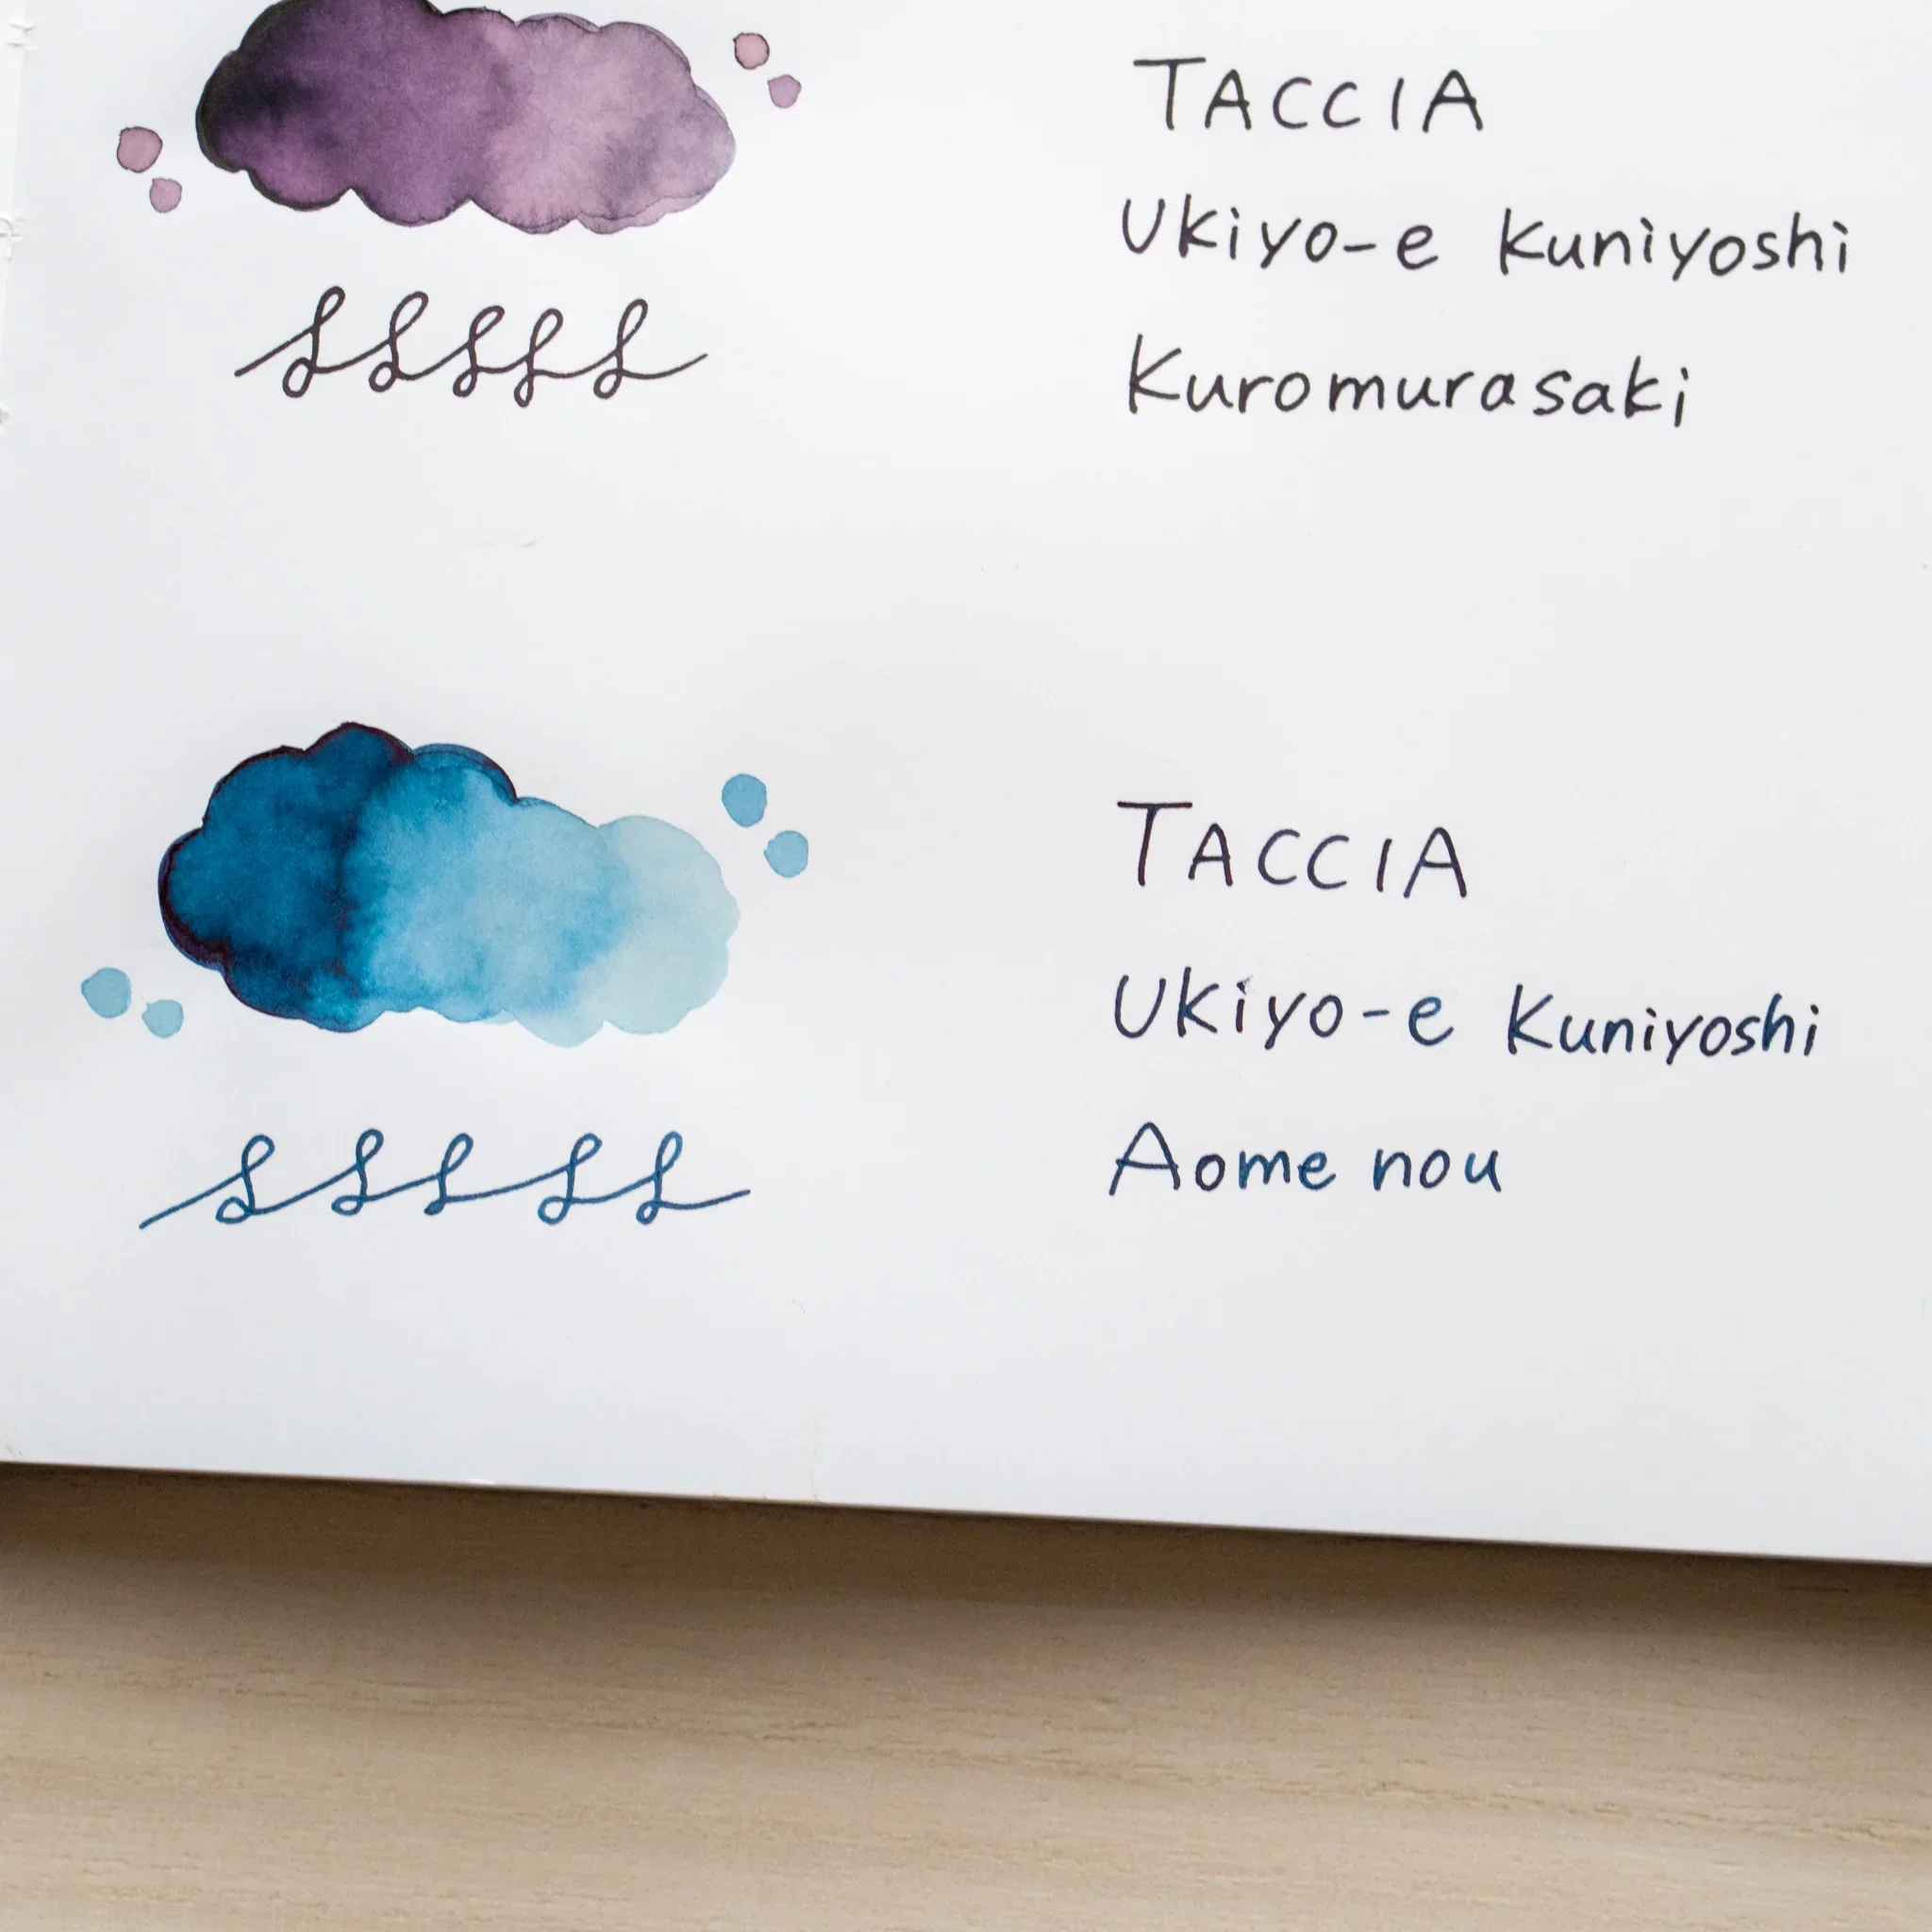 TACCIA
Ukiyo-e Kuniyoshi
Kuromurasaki
TACCIA
Ukiyo-e Kuniyoshi
Aome nou